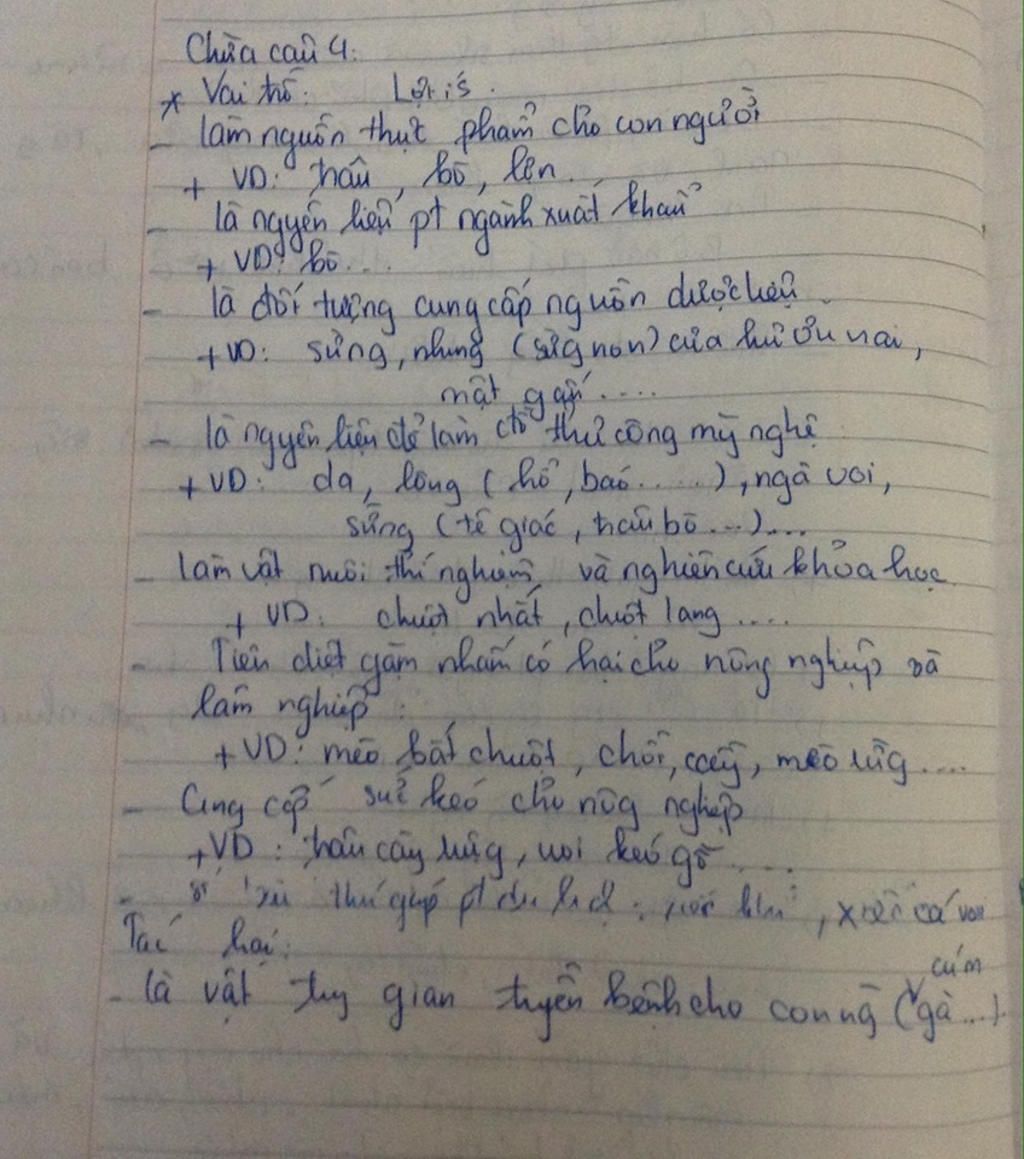 Chữa câu 4:
* Vai trò: Lợi ís.
- làm nguồn thực phẩm cho con người
+ VD: trâu, bò, lợn...
- là nguyên liệu pt ngành xuất khẩu
+ VD: bò...
- là đối tượng cung cấp nguồn dược liệu
+ VD: sừng, nhung (sừg non) của hươu nai,
mật gấu....
- là nguyên liệu để làm đồ thủ công mỹ nghệ
+ VD: da, lông (hổ, báo.....), ngà voi,
sừng (tê giác, trâu bò...)....
- làm vật nuôi thí nghiệm và nghiên cứu khoa học
+ VD: chuột nhắt, chuột lang....
- Tiêu diệt gặm nhấm có hại cho nông nghiệp và
lâm nghiệp:
+ VD: mèo bắt chuột, chồn, cầy, mèo rừg....
- Cung cấp sức kéo cho nôg nghiệp
+ VD: trâu cày ruộg, voi kéo gỗ....
- thú giúp pt du lịch: xiếc khỉ, xiếc cá voi
Tác hại:
- là vật tug gian truyền bệnh cho con ng (cúm gà...)